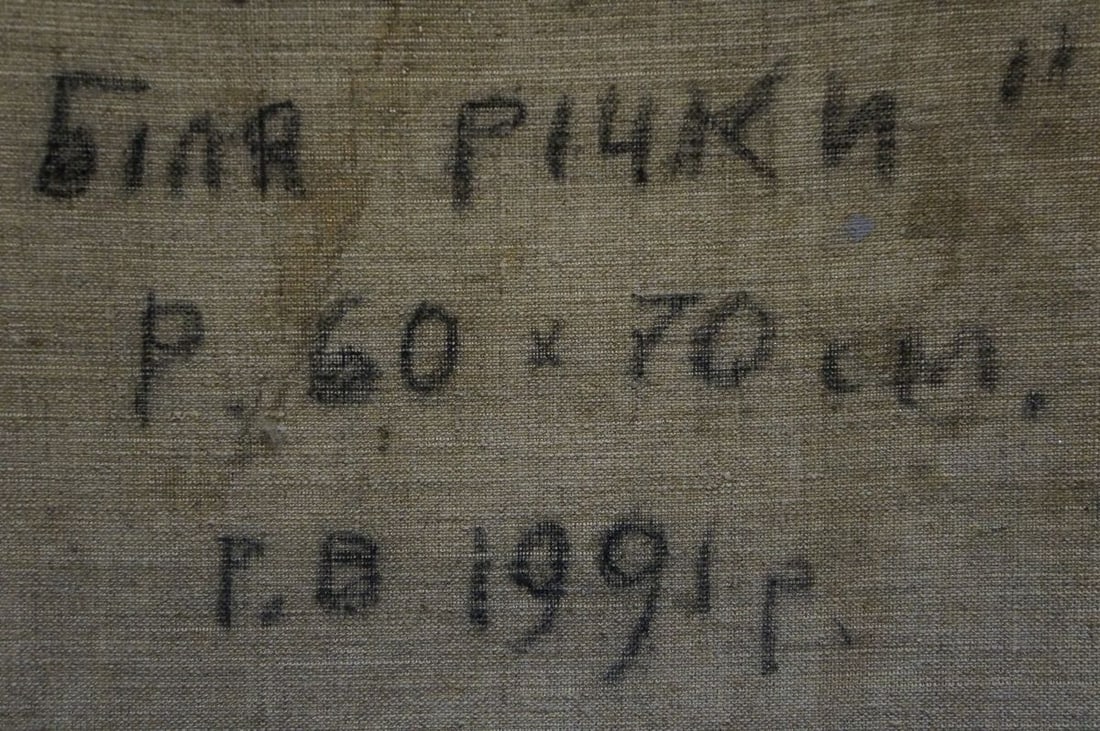 Біля річки"
Р. 60 х 70 см.
Г.В 1991 р.